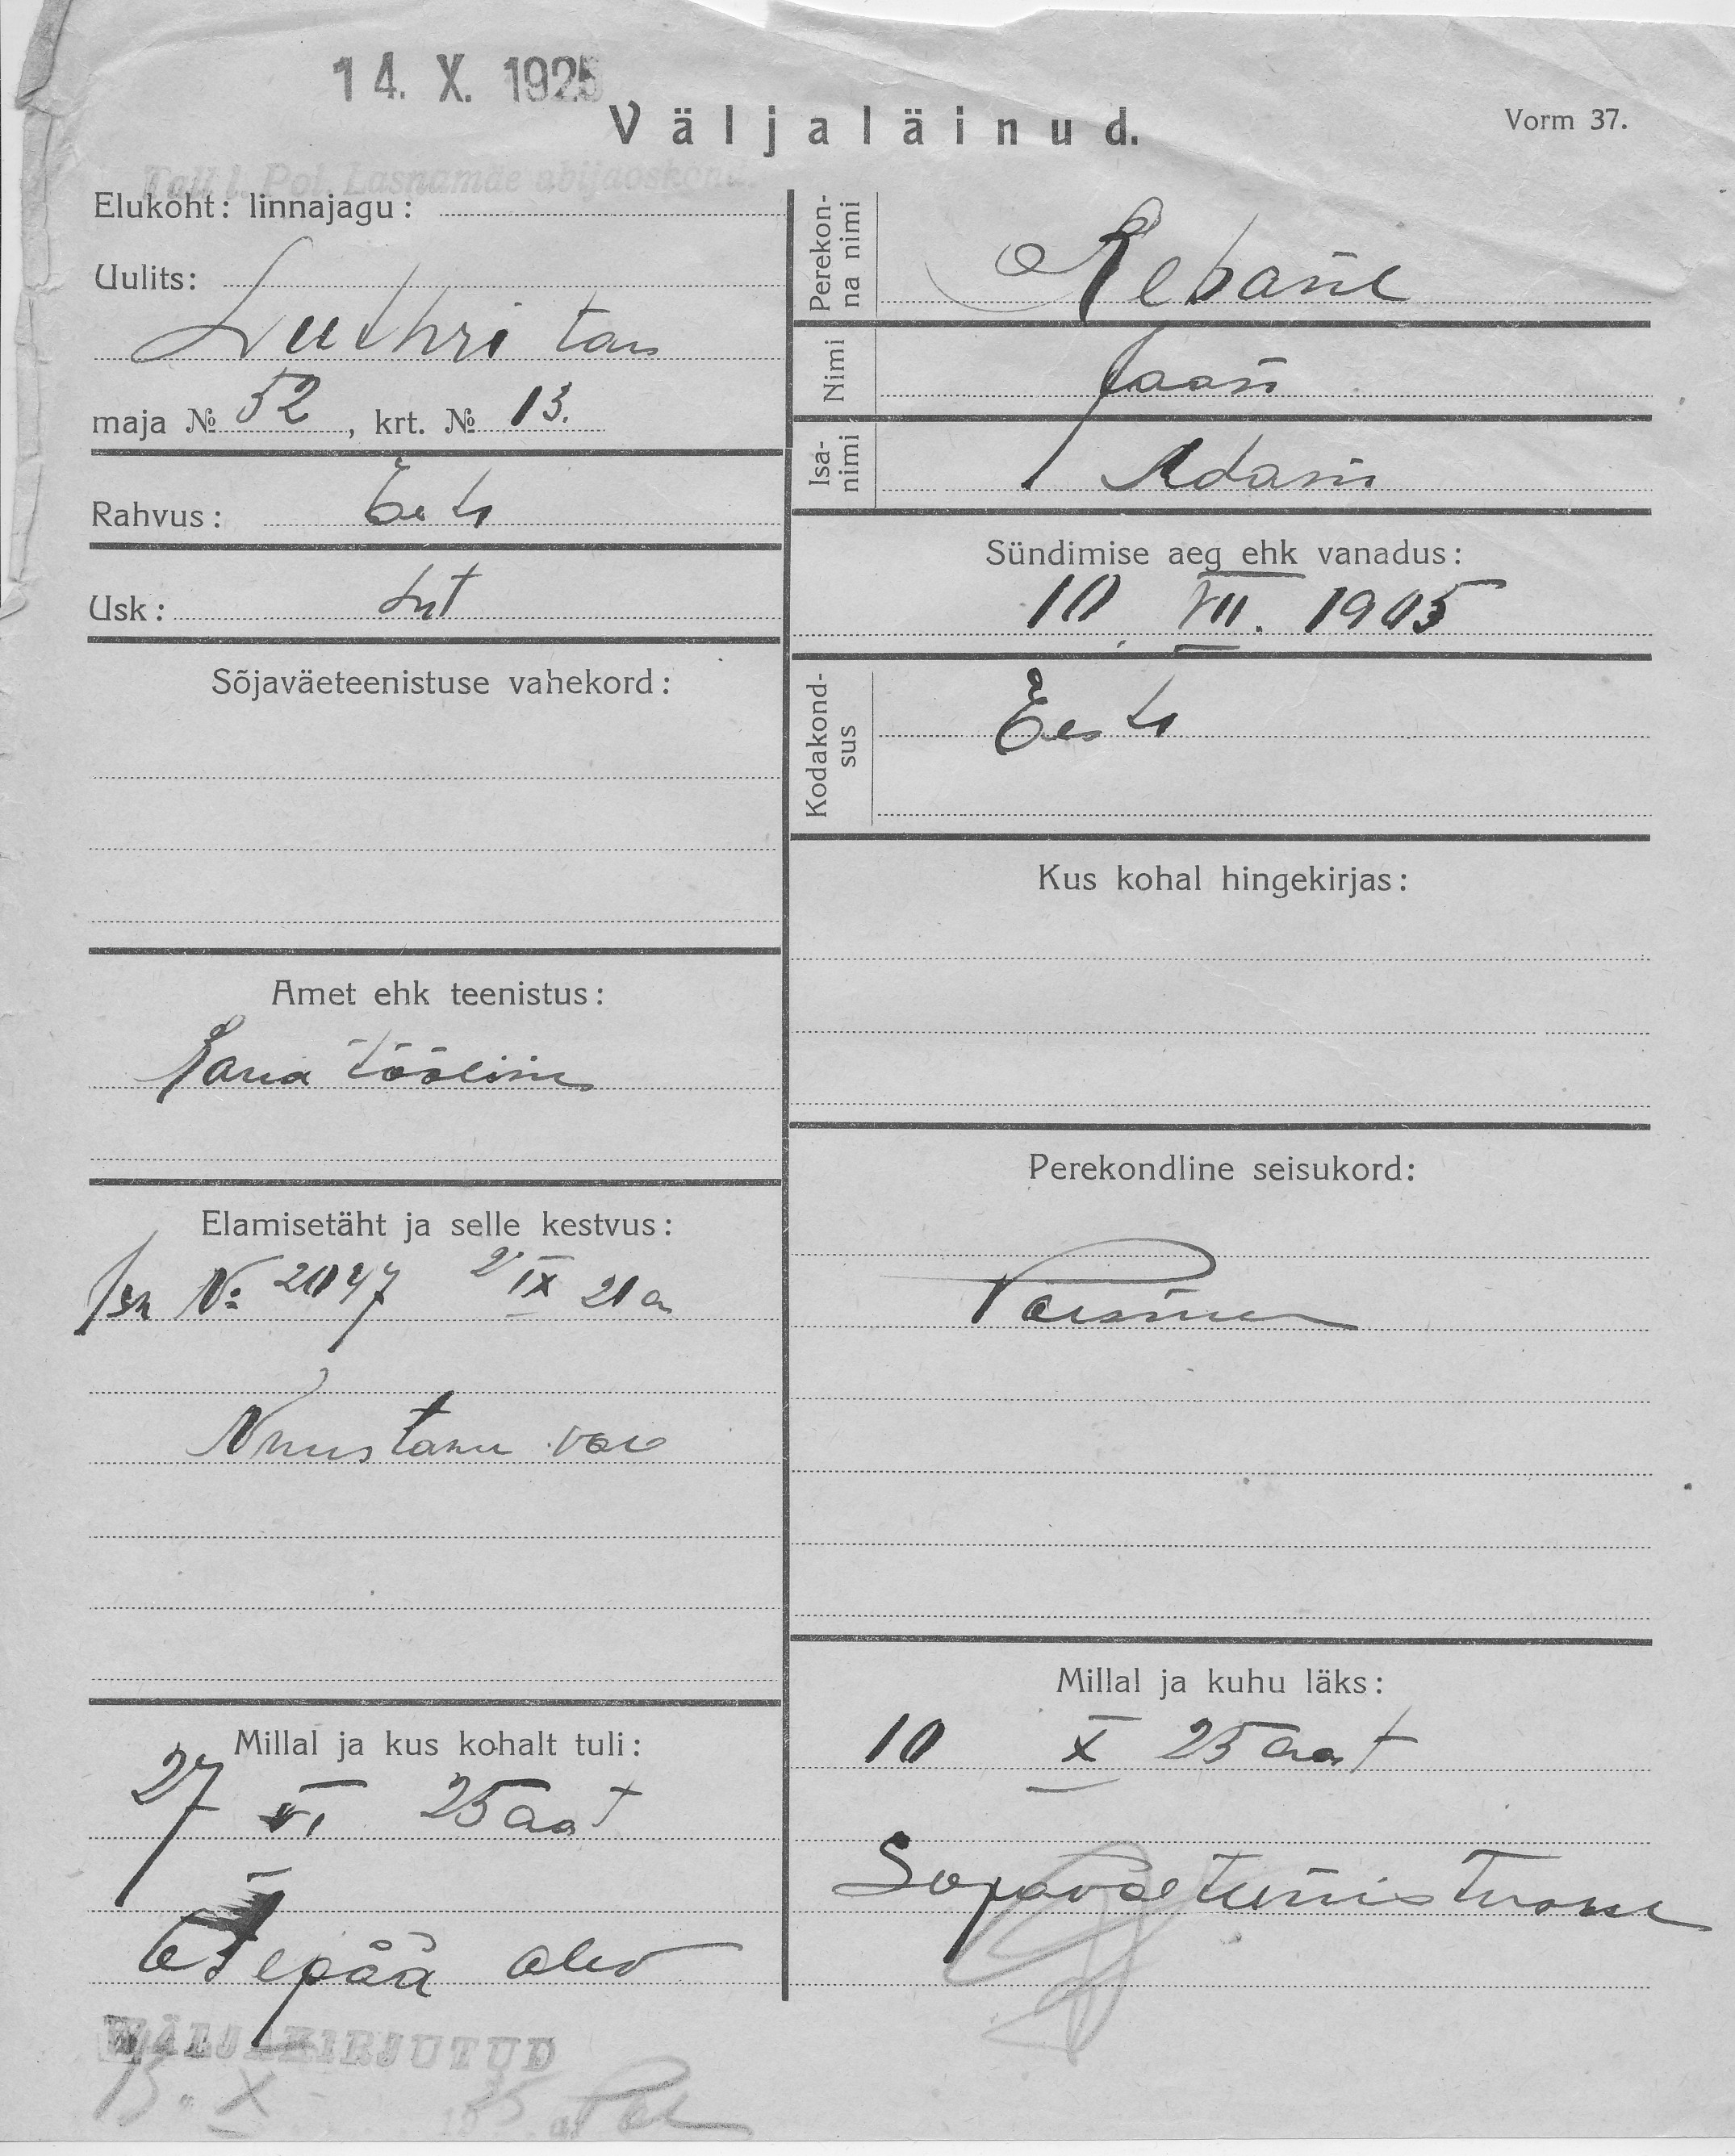 14. X. 1925
Väljaläinud.
Vorm 37.
Tall. l. Pol. Lasnamäe abijaoskond.
Elukoht: linnajagu:
Uulits:
Luthri tän
maja № 52, krt. № 13.
Rahvus: Eesti
Usk: lut
Sõjaväeteenistuse vahekord:
Amet ehk teenistus:
tööline
Elamisetäht ja selle kestvus:
Isn № 2047 2 IX 21 a
Nuustaku
Millal ja kus kohalt tuli:
27 VI 25 aast
Otepää alev
Perekonna nimi
Rebane
Nimi
Jaan
Isanimi
Adam
Sündimise aeg ehk vanadus:
10. VII. 1905
Kodakondsus
Eesti
Kus kohal hingekirjas:
Perekondline seisukord:
Poismees
Millal ja kuhu läks:
10 X 25 aast
Sojavaeteenistusse
WÄLJAKIRJUTUD
15. X